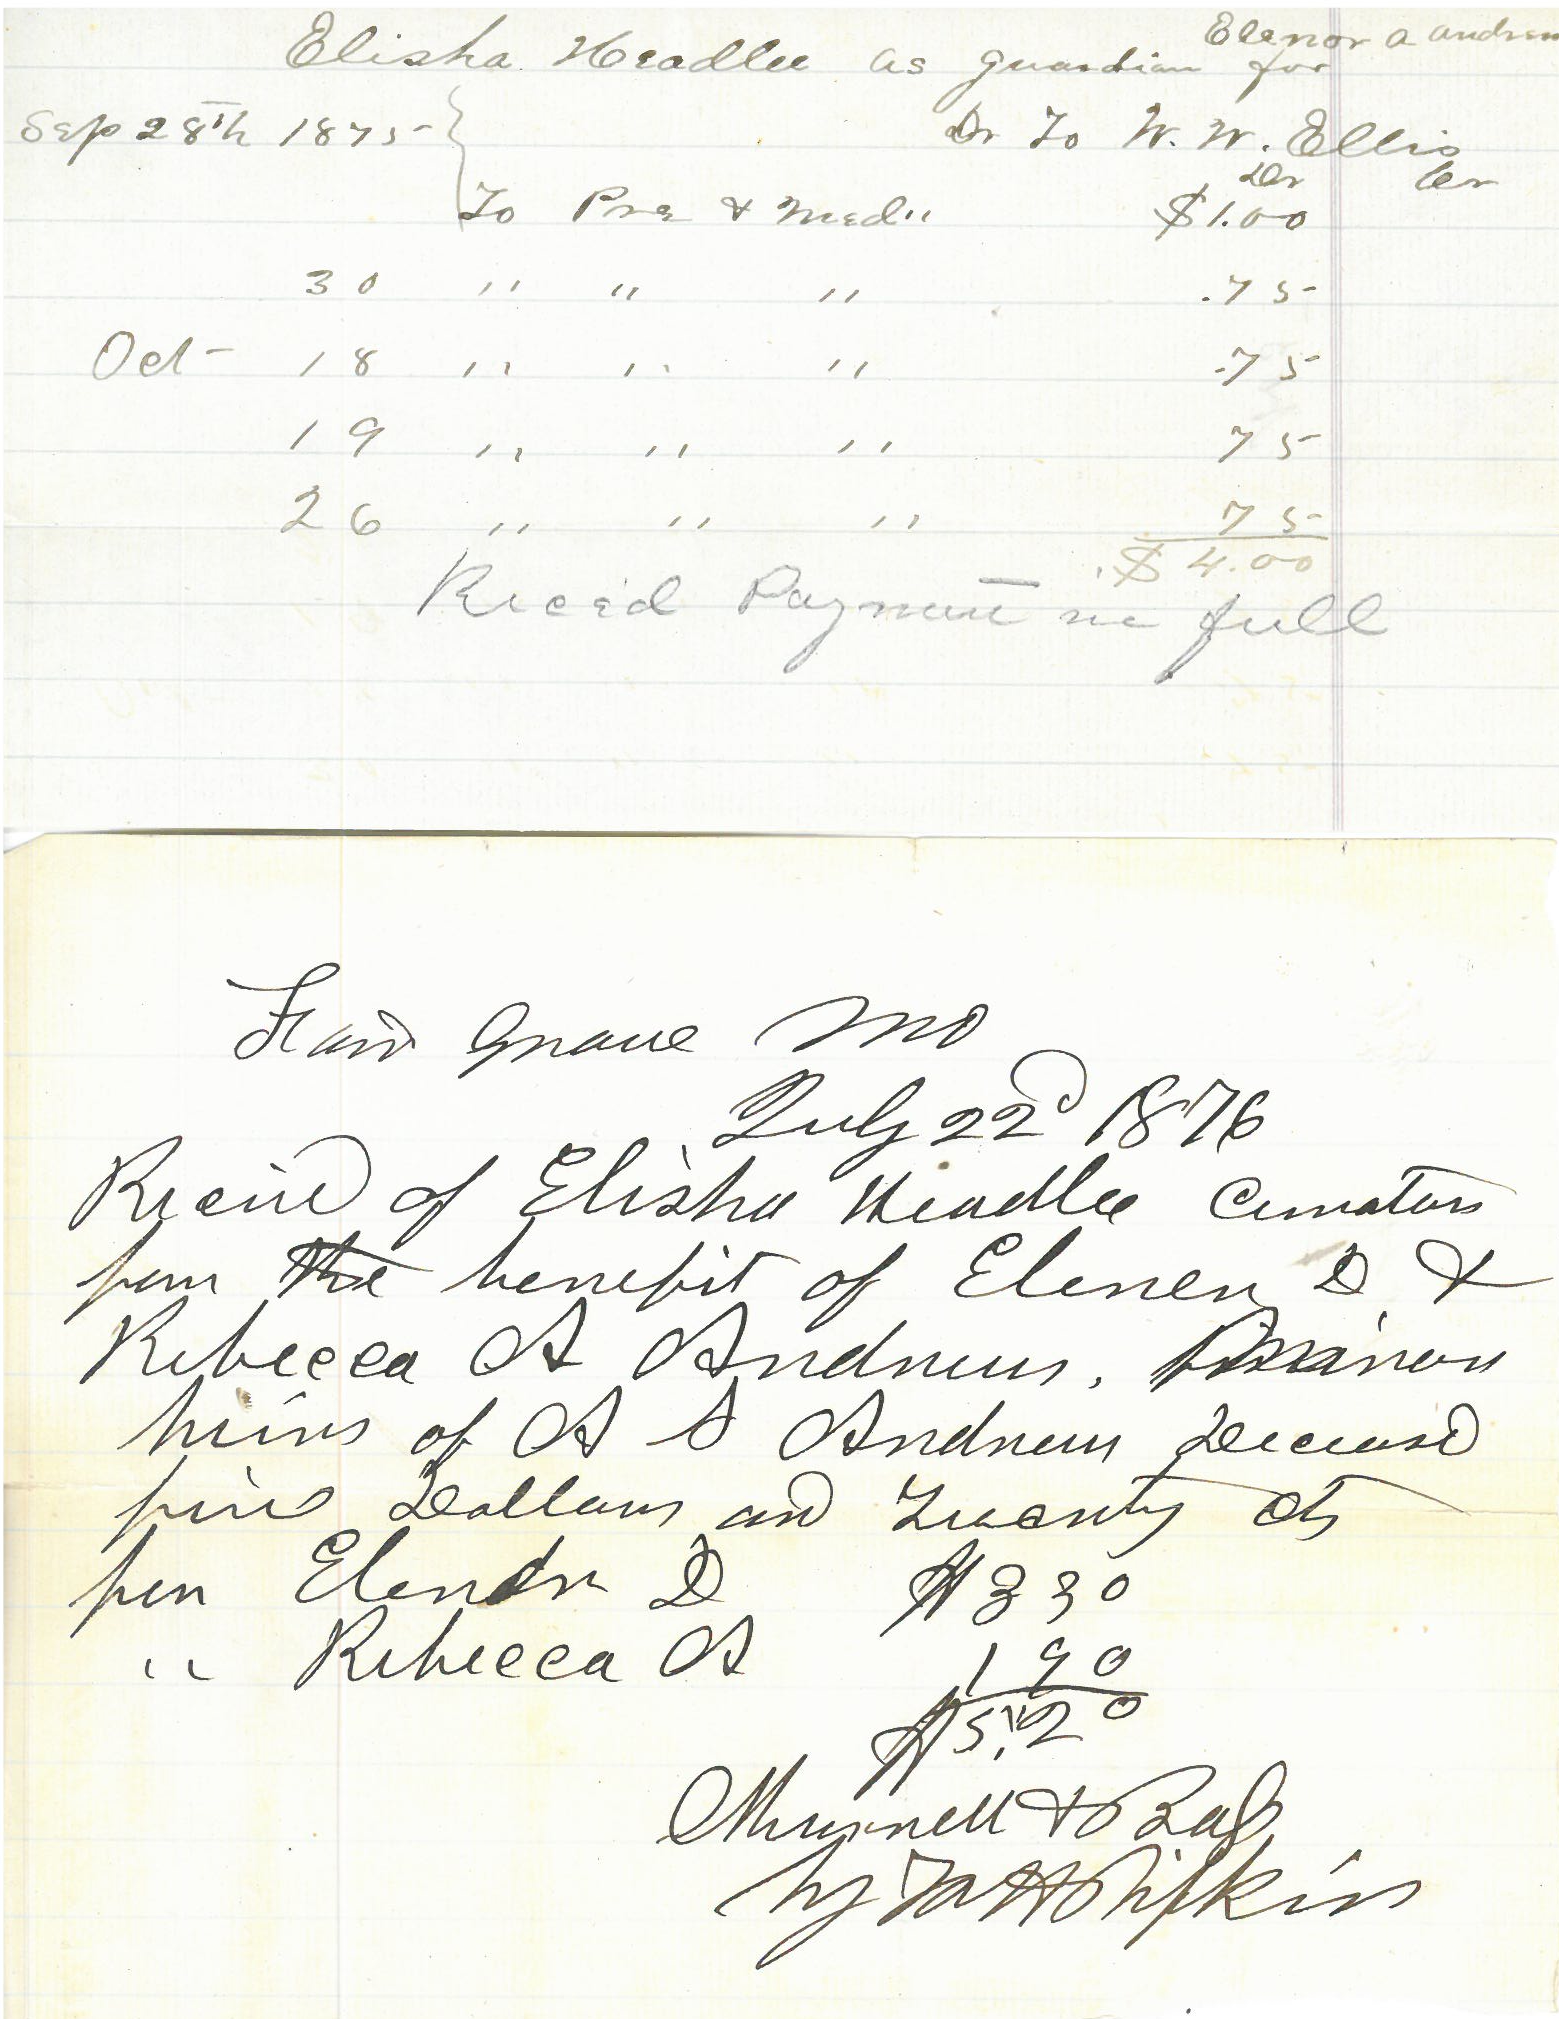 Elenor a andrew
Elisha Headlee as guardian for
Sep 28th 1875 Dr To W. W. Ellis
Dr Cr
To Pre & Med" $1.00
30 " " " .75
Oct 18 " " " .75
19 " " " 75
26 " " " 75
$4.00
Recd Payment in full
Fair Grove MO
July 22d 1876
Recivd of Elisha Headlee Curator
for the benefit of Elener D &
Rebecca A Andrews, minor
heirs of A S Andrews Deceasd
five Dollars and Twenty cts
for Elenor D $330
" Rebecca A 190
$5.20
Murrell &
by